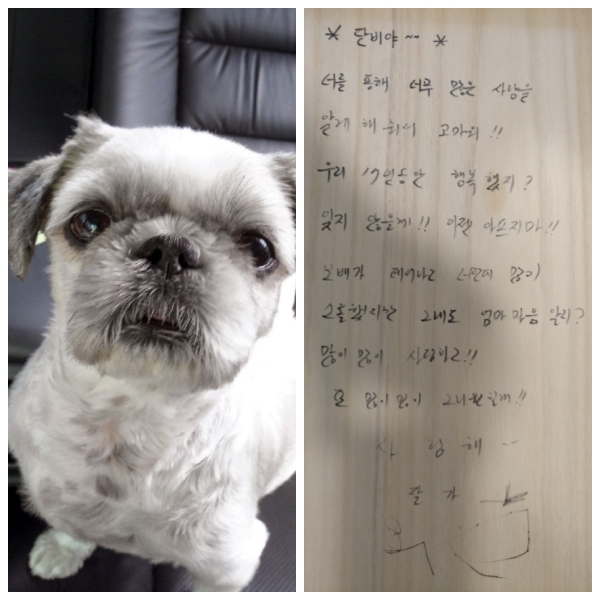 * 단비야 ~~ *
너를 통해 너무 많은 사랑을
알게 해 줘서 고마워 !!
우리 17년동안 행복했지?
잊지 않을께!! 이젠 아프지마!!
보배가 태어나고 너한테 많이
소홀했지만 그래도 엄마 마음 알지?
많이 많이 사랑하고!!
또 많이 많이 그리워 할께!!
사랑해 ~
잘가